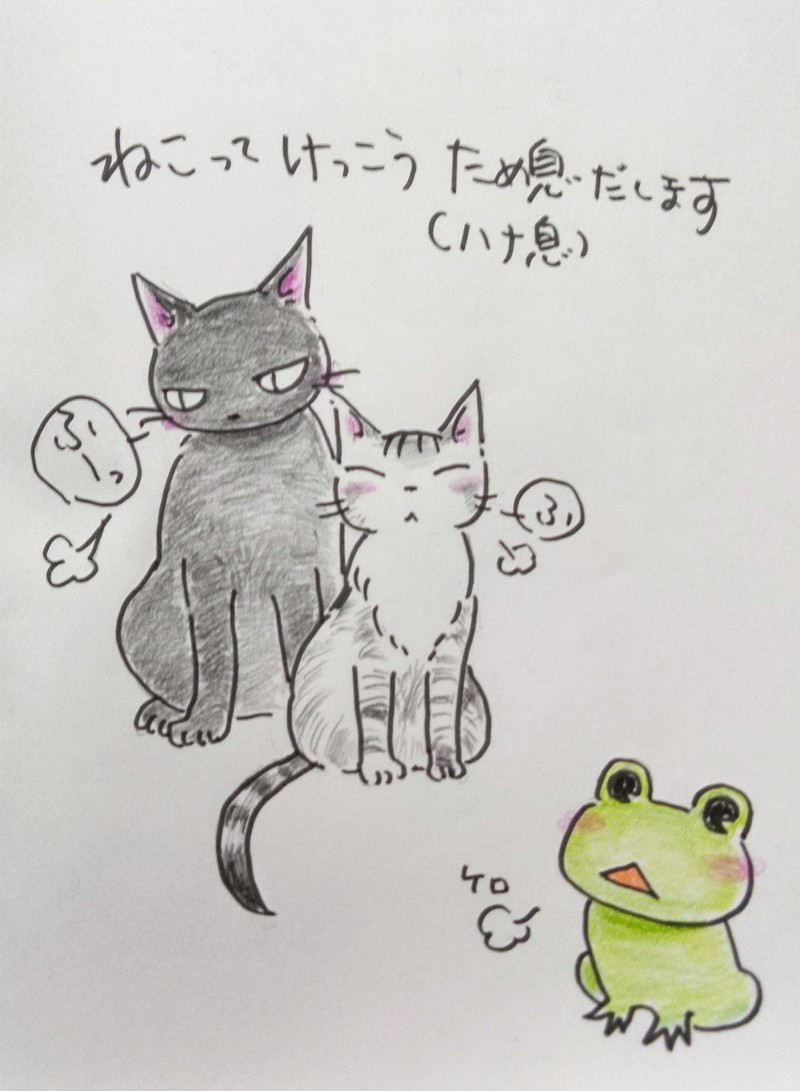 ねこって けっこう ため息だします
(ハナ息)
ふぅーっ
ふぅ
ケロ